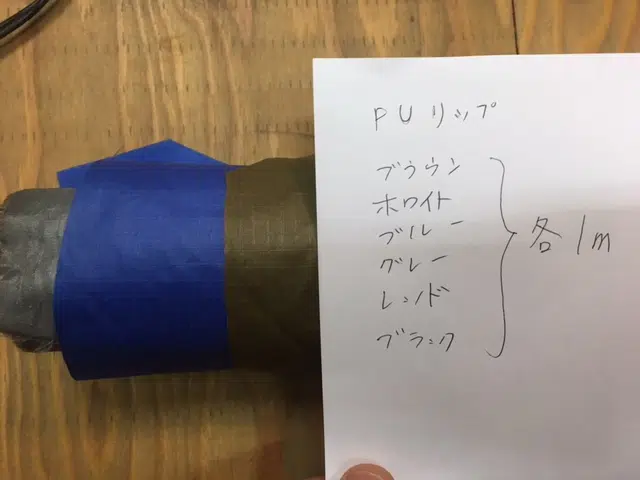 PUリップ
ブラウン
ホワイト
ブルー
グレー
レッド
ブラック
各1m